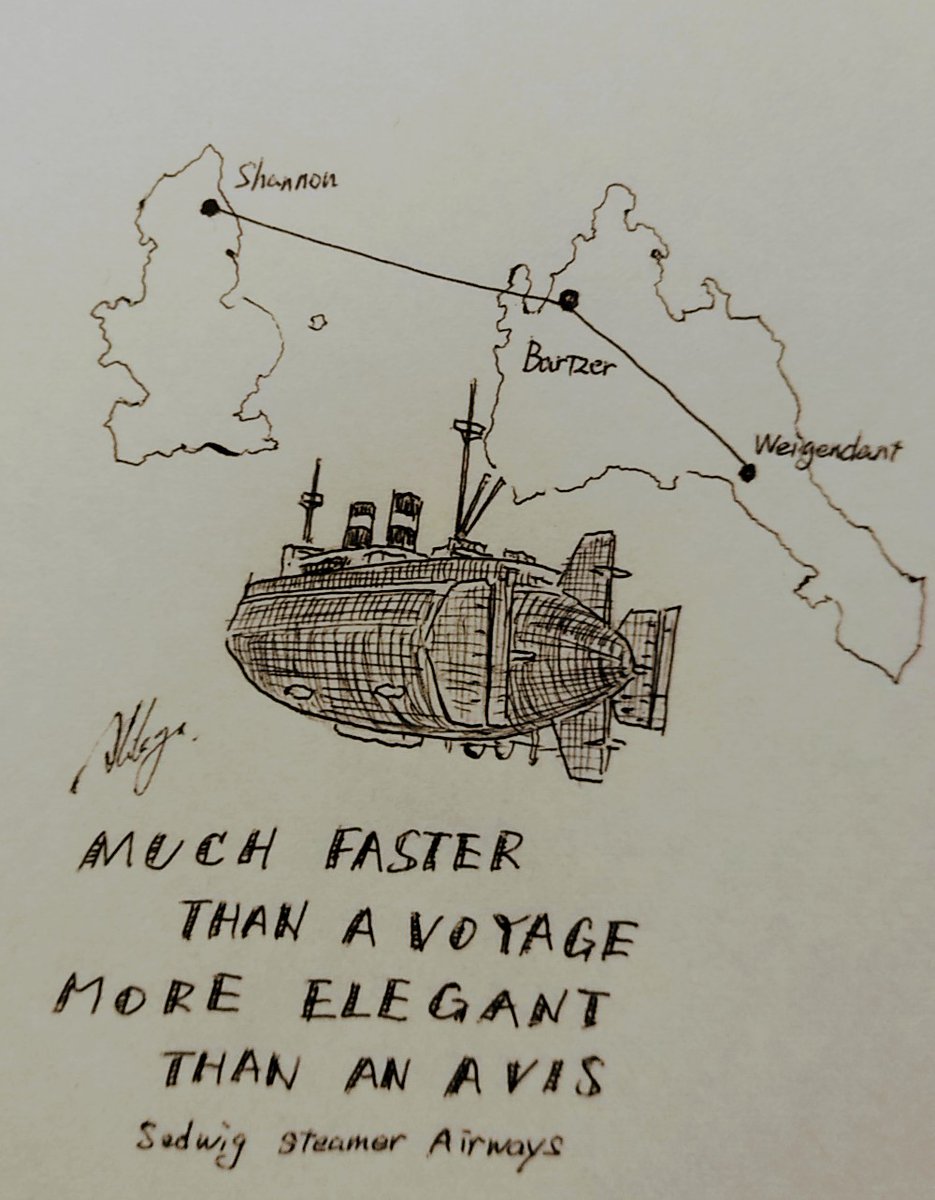 Shannon
Bartzer
Weigendant
MUCH FASTER
THAN A VOYAGE
MORE ELEGANT
THAN AN AVIS
Sedwig Steamer Airways